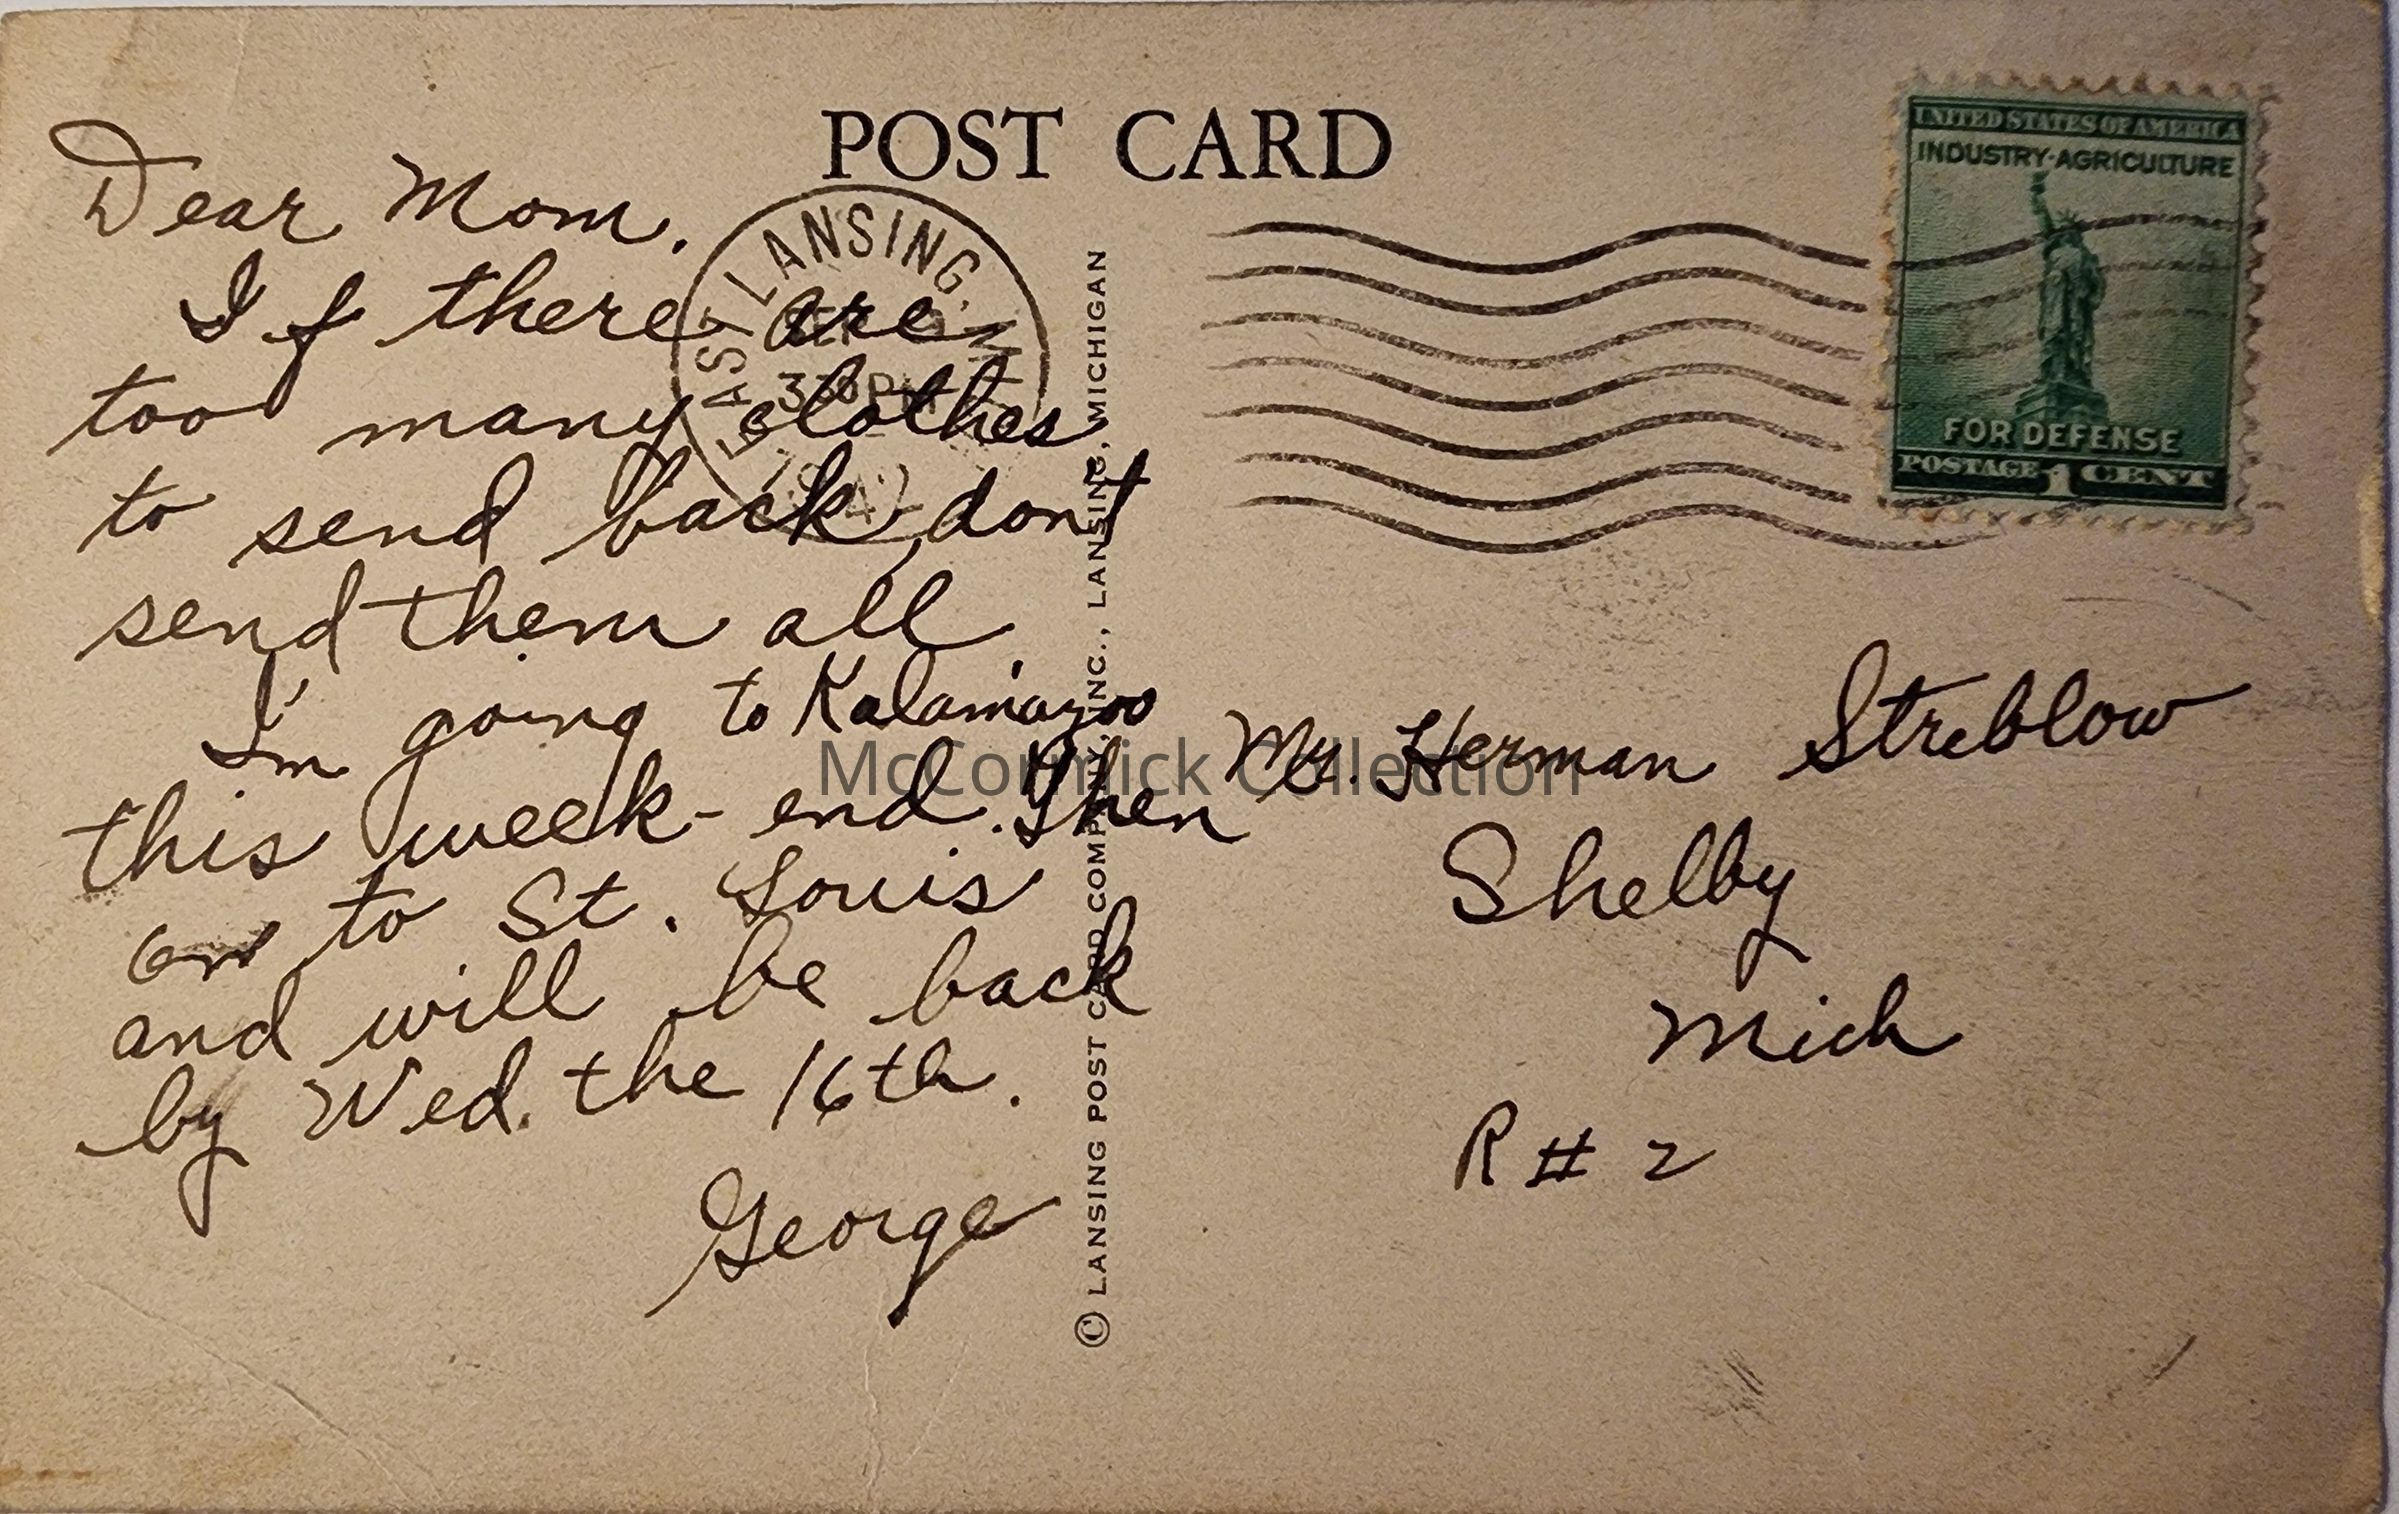 POST CARD
Dear Mom.
If there are
too many clothes
to send back, dont
send them all.
I'm going to Kalamazoo
this week-end. Then
on to St. Louis
and will be back
by Wed. the 16th.
George
EAST LANSING, MICH
330PM
© LANSING POST CARD COMPANY, INC., LANSING, MICHIGAN
UNITED STATES OF AMERICA
INDUSTRY-AGRICULTURE
FOR DEFENSE
POSTAGE 1 CENT
Mr. Herman Streblow
Shelby
Mich
R # 2
McCormick Collection